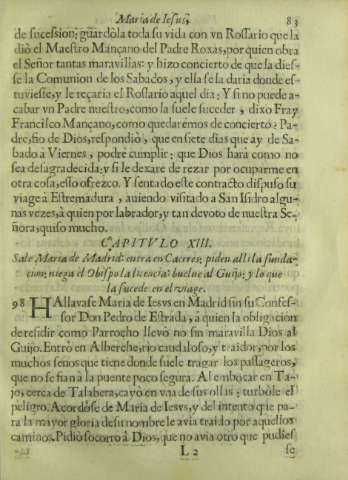 Maria de Iesus. 83
de sucession; guardòla toda su vida con vn Rossario que la
diò el Maestro Mançano del Padre Roxas, por quien obra
el Señor tantas maravillas: y hizo concierto de que la dies-
se la Comunion de los Sabados, y ella se la daria donde es-
tuviesse, y le reçaria el Rossario aquel dia: Y si no puede a-
cabar vn Padre nuestro, como la suele suceder, dixo Fray
Francisco Mançano, como quedarémos de concierto? Pa-
dre, fio de Dios, respondiò, que en siete dias que ay de Sa-
bado à Viernes, podrè cumplir; que Dios harà como no
sea desagradecida; y si le dexare de rezar por ocuparme en
otra cosa, esso ofrezco. Y sentado este contracto dispuso su
viage à Estremadura, auiendo visitado à San Isidro algu-
nas vezes, à quien por labrador, y tan devoto de nuestra Se-
ñora, quiso mucho.
CAPITVLO XIII.
Sale Maria de Madrid: entra en Caceres; piden alli la funda-
cion; niega el Obispo la licencia: buelue al Guijo; y lo que
la sucede en el viage.
98 HAllavase Maria de Iesvs en Madrid sin su Confes-
sor Don Pedro de Estrada, à quien la obligacion
de residir como Parrocho llevò no sin maravilla Dios al
Guijo. Entrò en Alberche, rio caudaloso, y traidor, por los
muchos senos que tiene donde suele tragar los passageros,
que no se fian à la puente poco segura. Al embocar en Ta-
jo, cerca de Talabera, cayò en vna de sus ollas: turbòle el
peligro. Acordòse de Maria de Iesvs, y del intento que pa-
ra la mayor gloria de su nombre le avia traido por aquellos
caminos. Pidiò socorro à Dios, que no avia otro que pudies-
L 2 se